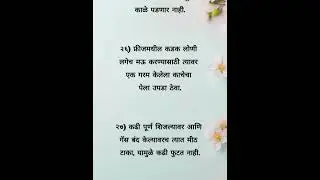 काळे पडणार नाही.
२६) फ्रीजमधील कडक लोणी
लगेच मऊ करण्यासाठी त्यावर
एक गरम केलेला काचेचा
पेला उपडा ठेवा.
२७) कढी पूर्ण शिजल्यावर आणि
गॅस बंद केल्यावरच त्यात मीठ
टाका, यामुळे कढी फुटत नाही.